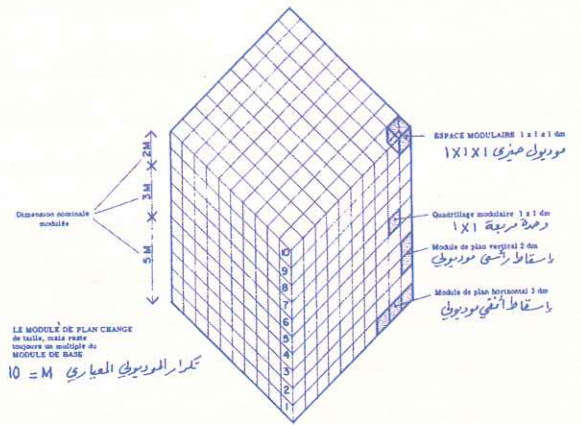 2M
3M
5M
Dimension nominale
modulée
ESPACE MODULAIRE 1 x 1 x 1 dm
موديول حيزي 1X1X1
Quadrillage modulaire 1 x 1 dm
وحدة مربعة 1X1
Module de plan vertical 2 dm
إسقاط رأسي موديولي
Module de plan horizontal 3 dm
إسقاط أفقي موديولي
10
9
8
7
6
5
4
3
2
1
LE MODULE DE PLAN CHANGE
de taille, mais reste
toujours un multiple du
MODULE DE BASE
تكرار الموديولي المعياري M = 10